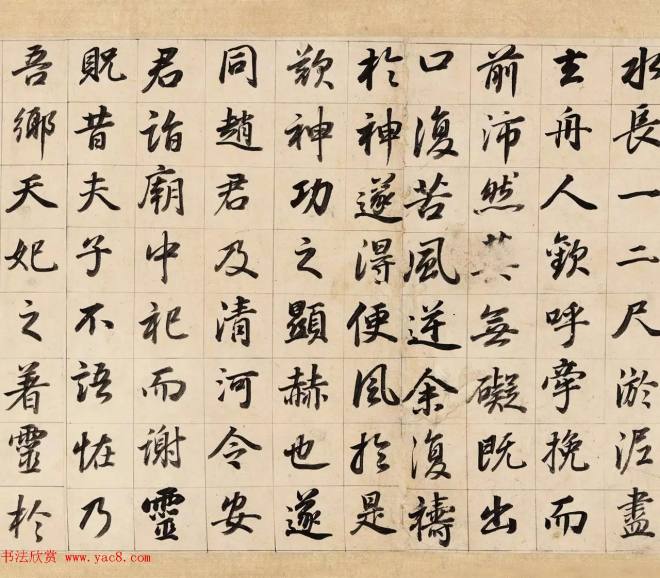 水長一二尺淤泥盡
去舟人歡呼牽挽而
前沛然其無礙既出
口復苦風逆余復禱
於神遂得便風於是
歎神功之顯赫也遂
同趙君及清河令安
君詣廟中祀而謝靈
貺昔夫子不語恠乃
吾鄉天妃之著靈於
书法欣赏 www.yac8.com